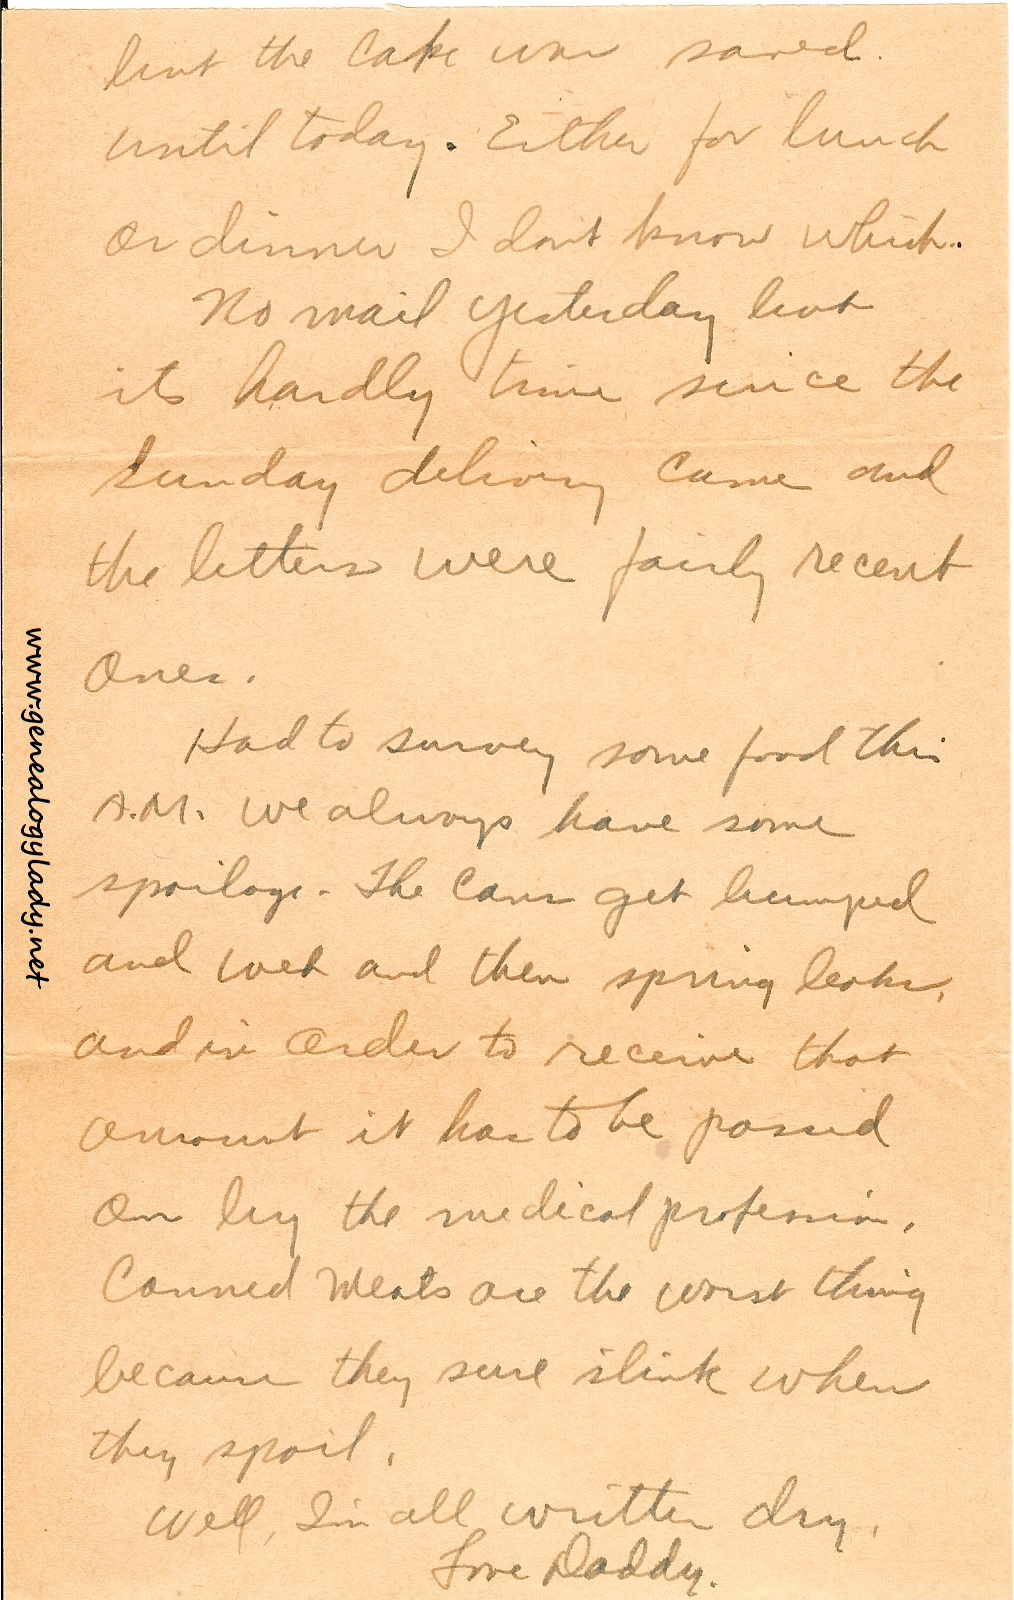 but the cake was saved
until today. Either for lunch
or dinner I don't know which.
No mail yesterday but
its hardly time since the
Sunday delivery came and
the letters were fairly recent
ones.
Had to survey some food this
A.M. We always have some
spoilage. The cans get bumped
and wet and then spring leaks,
and in order to receive that
amount it has to be passed
on by the medical profession.
Canned meats are the worst thing
because they sure stink when
they spoil.
Well, I'm all written dry.
Love Daddy.
www.genealogylady.net